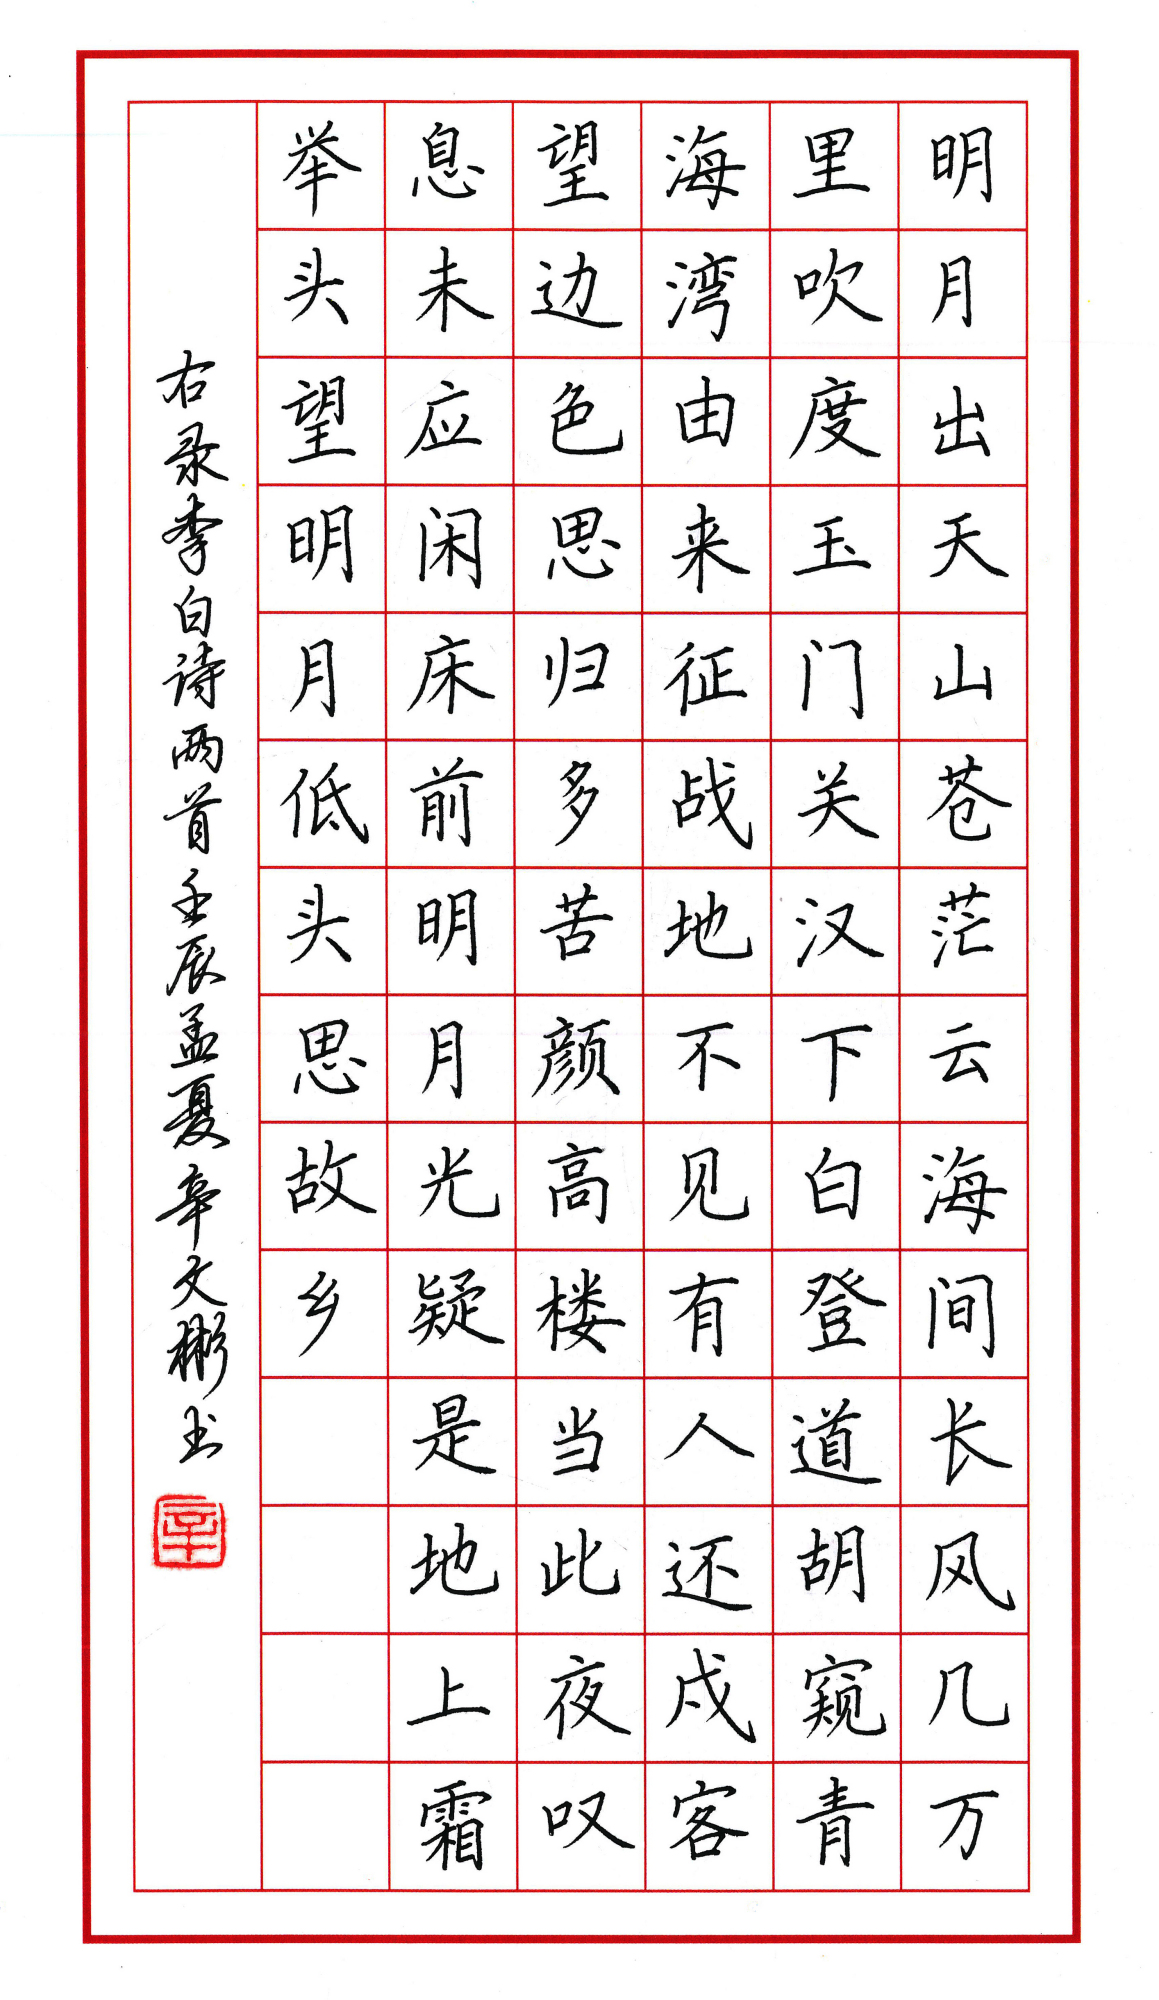 明月出天山苍茫云海间长风几万
里吹度玉门关汉下白登道胡窥青
海湾由来征战地不见有人还戍客
望边色思归多苦颜高楼当此夜叹
息未应闲床前明月光疑是地上霜
举头望明月低头思故乡
右录李白诗两首壬辰孟夏辛文彬书
辛